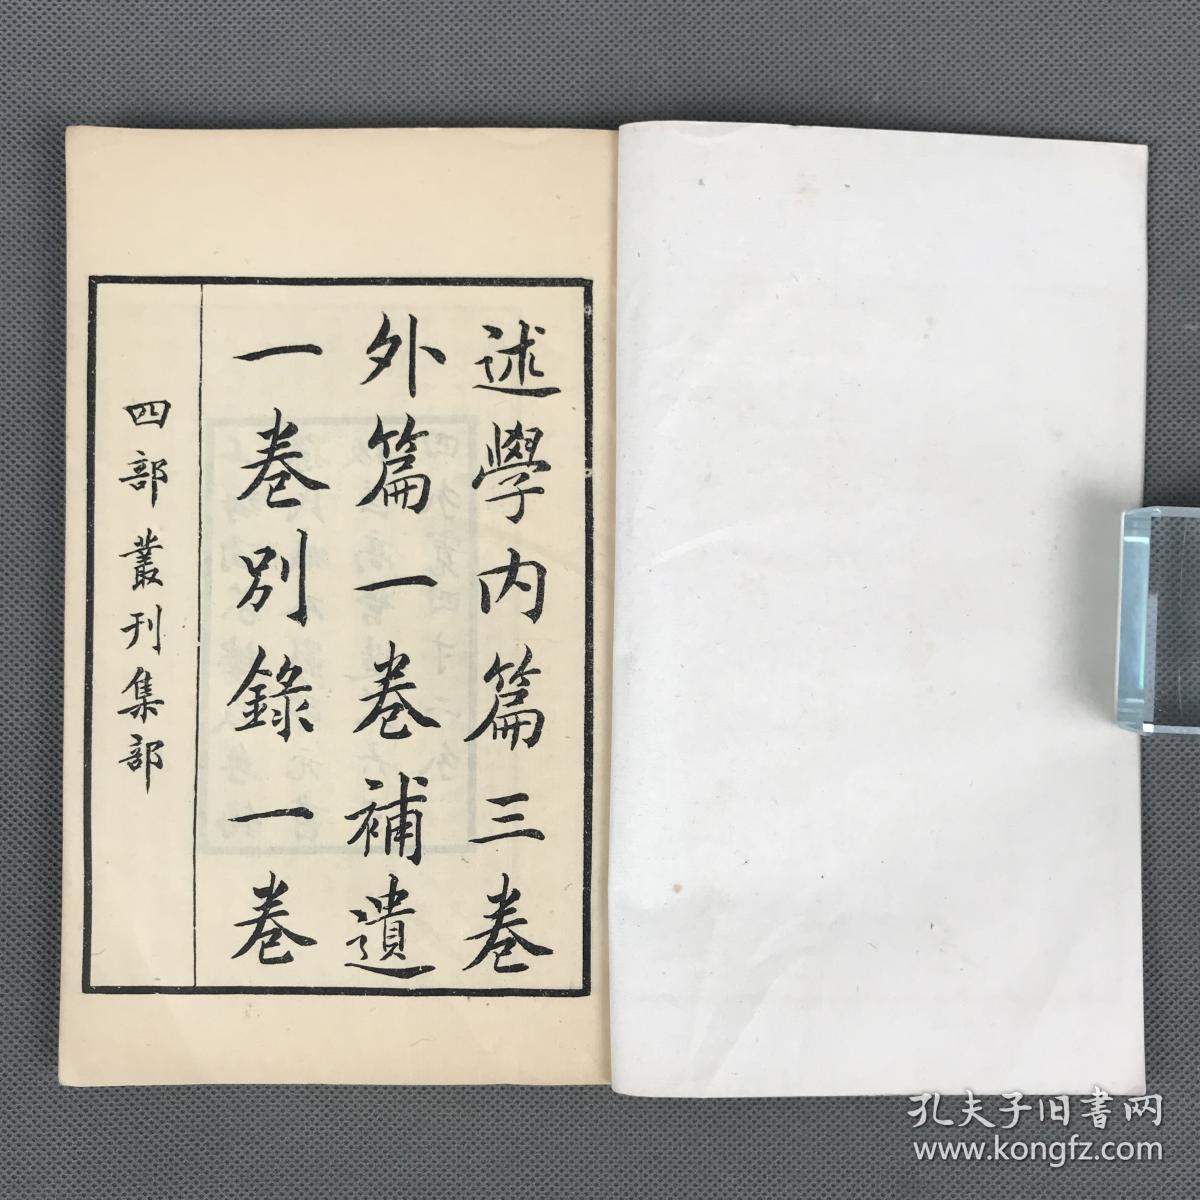 述學內篇三卷
外篇一卷補遺
一卷別錄一卷
四部叢刊集部
孔夫子旧书网
www.kongfz.com